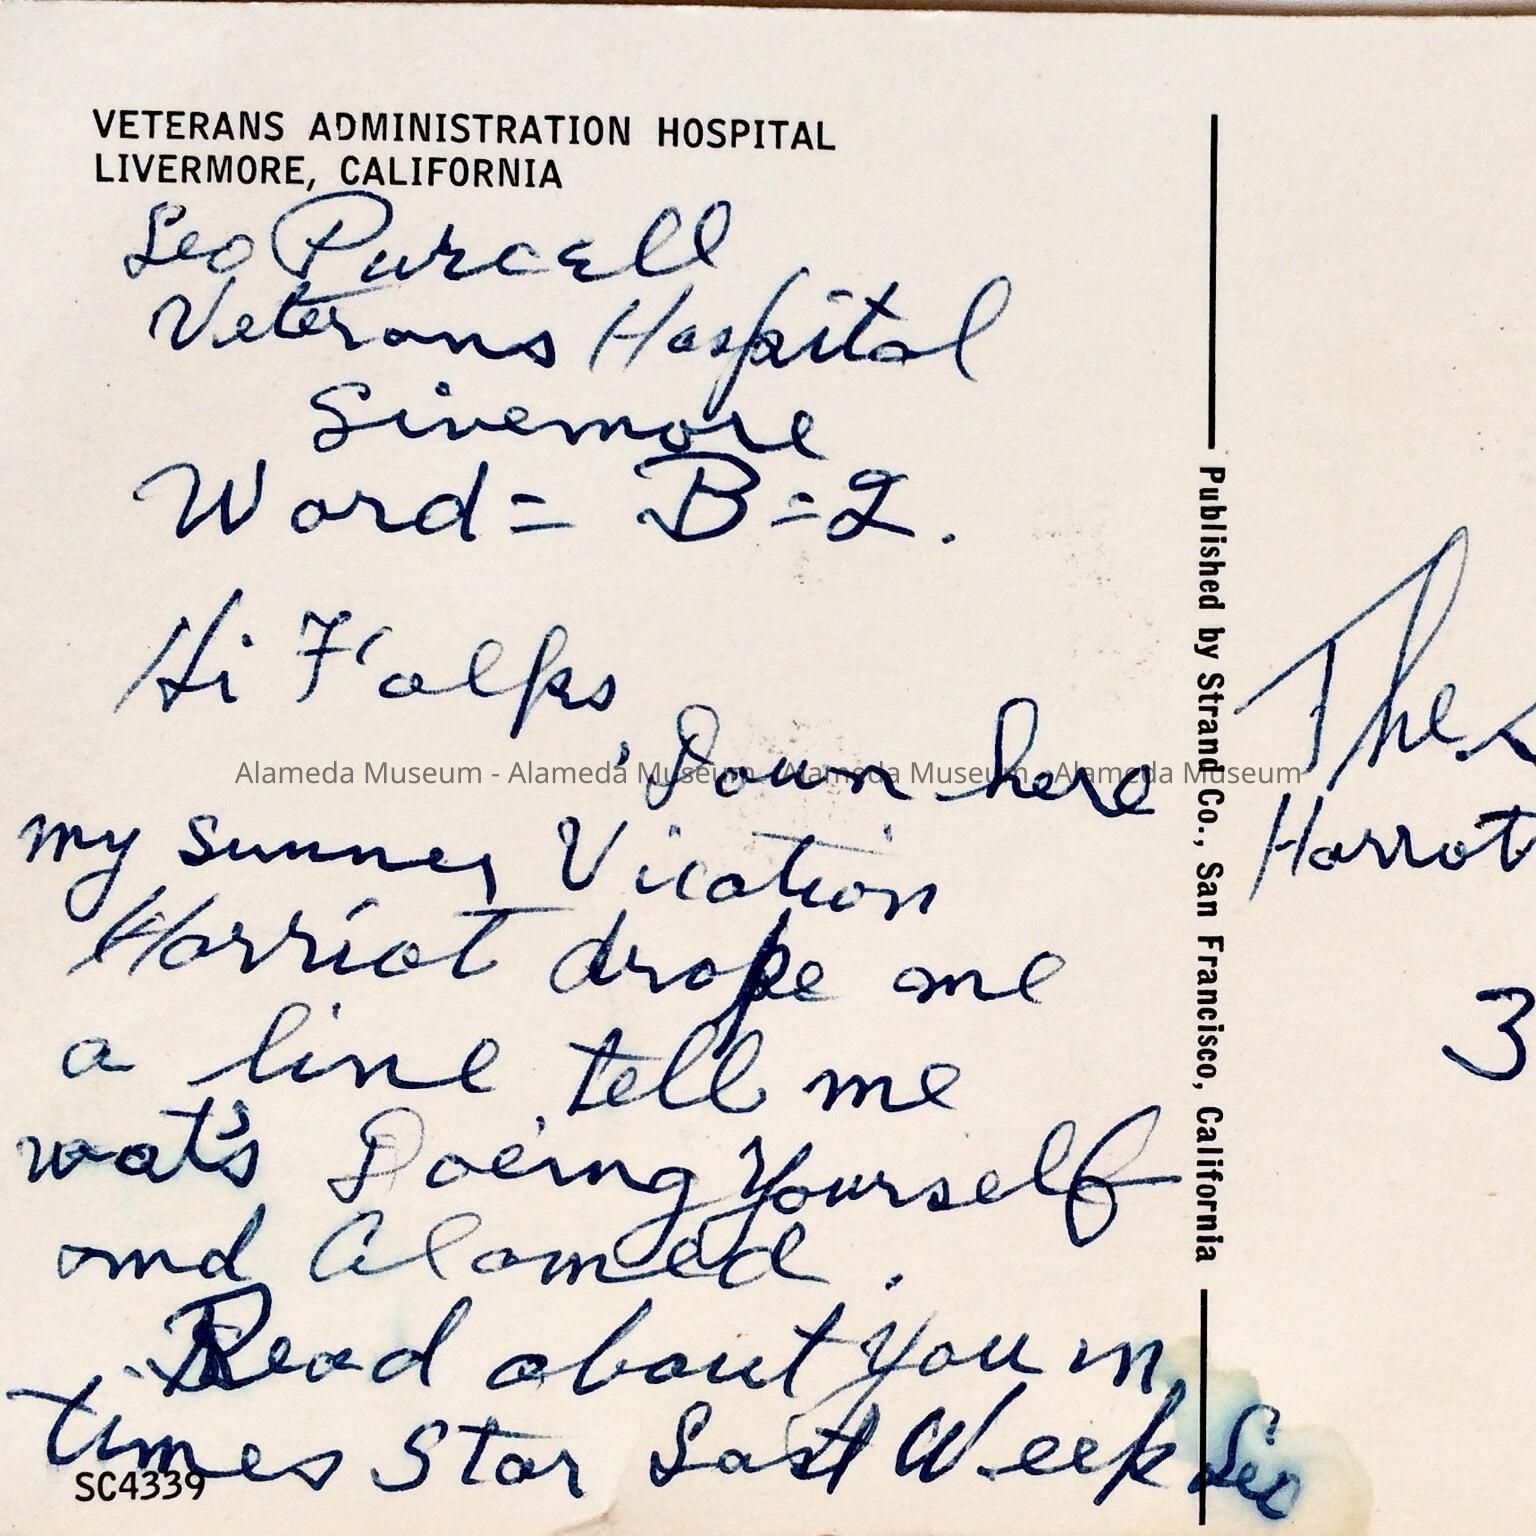 VETERANS ADMINISTRATION HOSPITAL
LIVERMORE, CALIFORNIA
Leo Purcell
Veterans Hospital
Livemore
Word = B=2.
Hi Folks,
Down here
my sunner Vication
Harriot drope me
a line tell me
wat's Doeing Yourself
and Alameda.
Read about you in
times Star Last Week Leo
SC4339
Published by Strand Co., San Francisco, California
The
Harrot
3
Alameda Museum - Alameda Museum - Alameda Museum - Alameda Museum